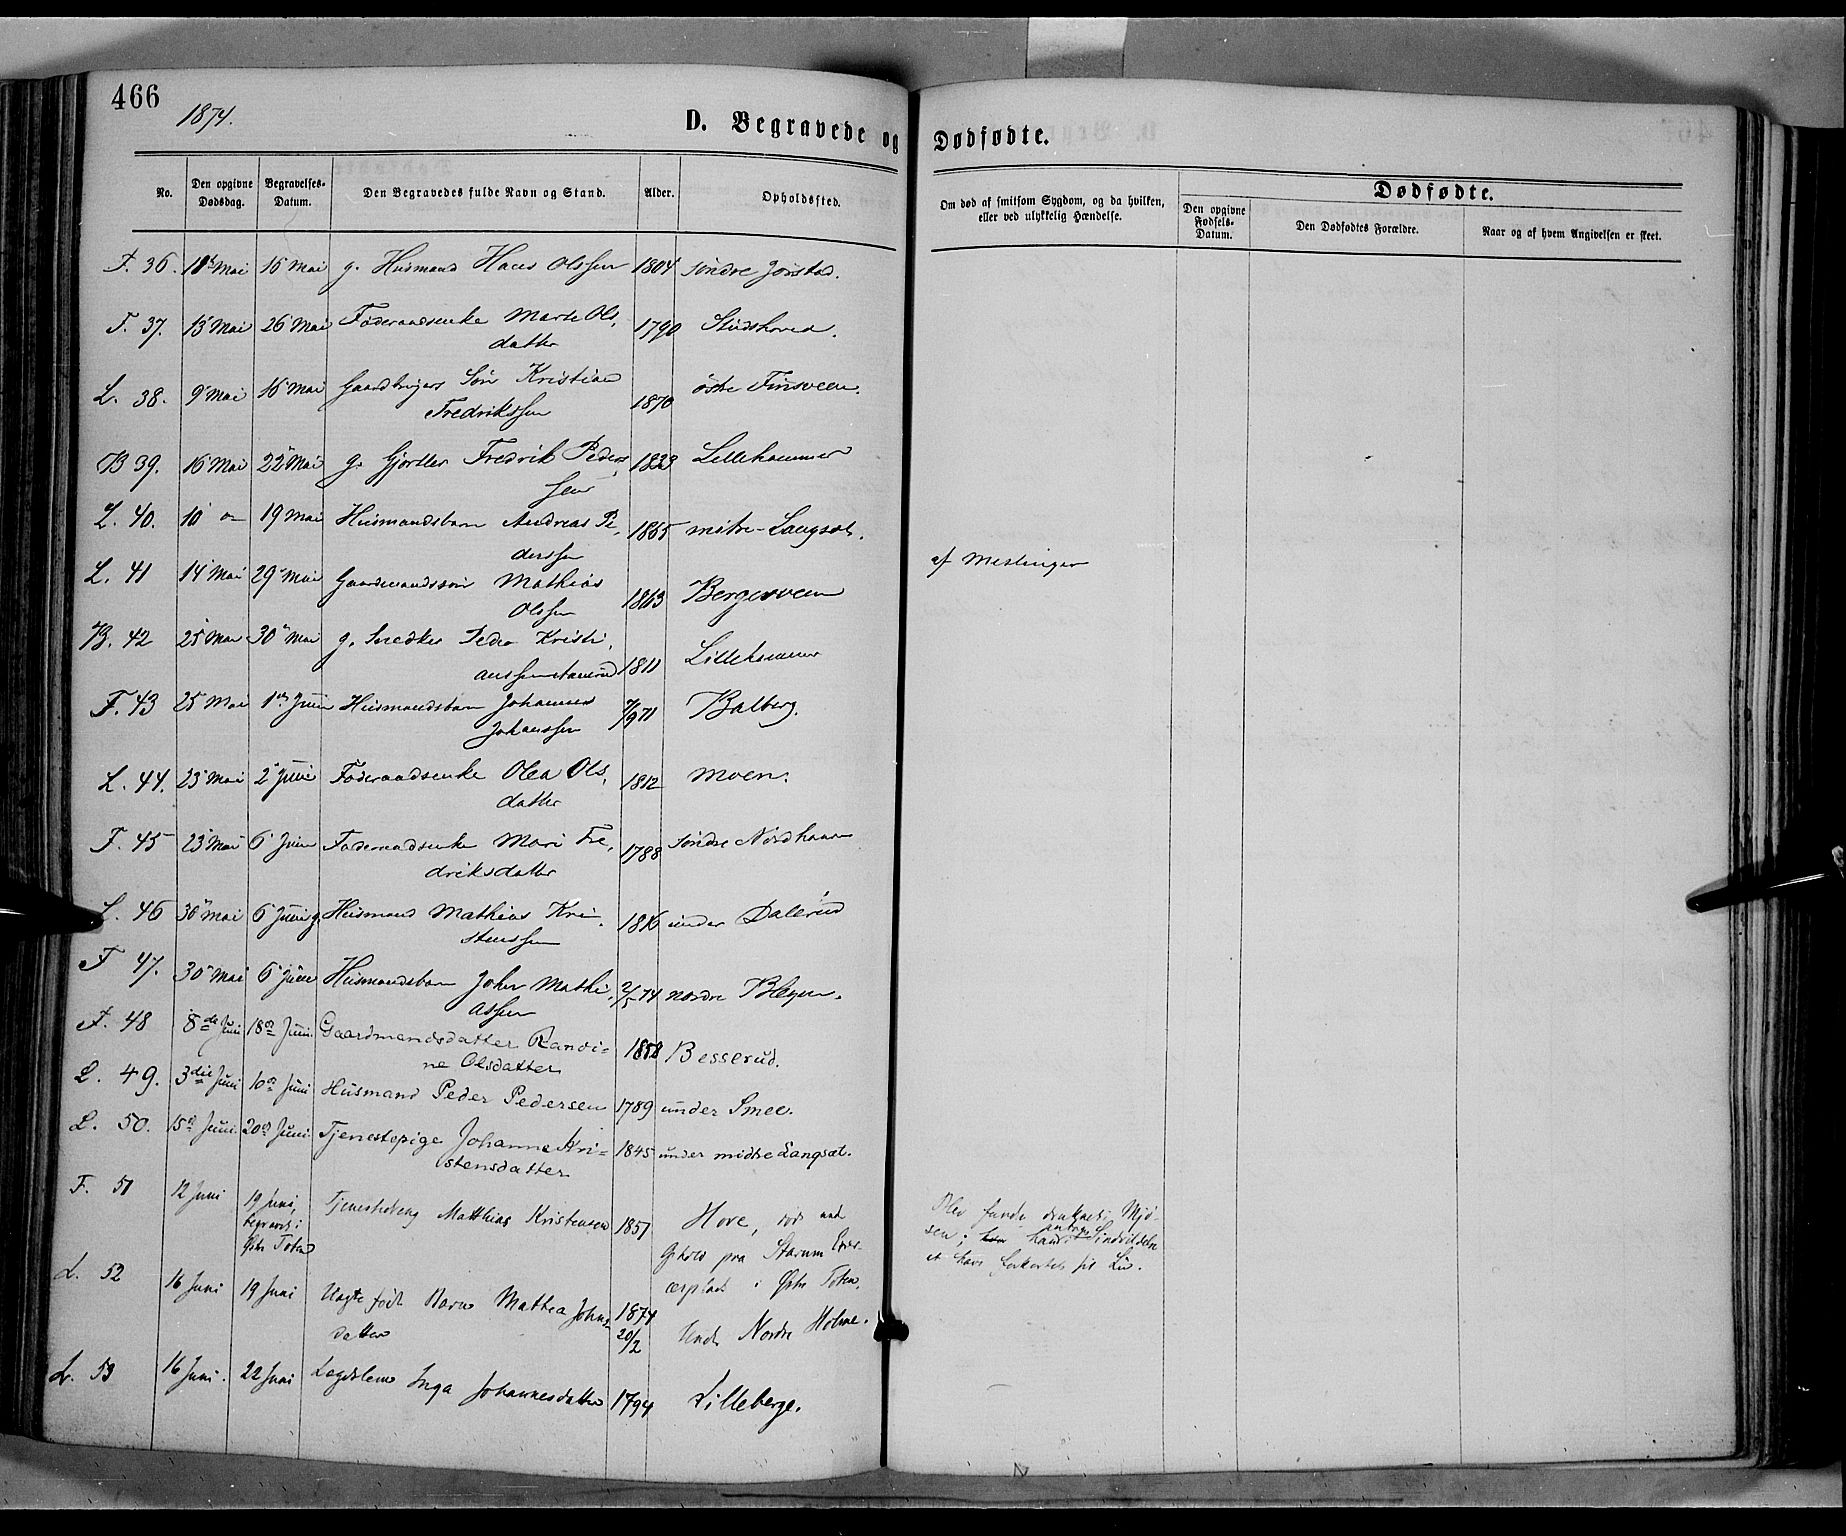 466
1874.
D. Begravede og Dødfødte.
No. Den opgivne Dødsdag. Begravelses-Datum. Den Begravedes fulde Navn og Stand. Alder. Opholdssted. Om død af smitsom Sygdom, og da hvilken, eller ved ulykkelig Hændelse. Dødfødte.
Den opgivne Fødsels-Datum. Den Dødfødtes Forældre. Naar og af hvem Angivelsen er skeet.
F. 36. Mai 16 Mai g. Husmand Hans Olssen 1804 søndre Jørstad.
F. 37. 13 Mai 26 Mai Føderaadsenke Marte Ols,
datter 1790 Stidshoved.
L. 38. 9 Mai 16 Mai Gaardbrugers Søn Kristian
Fredrikssen 1870 østre Finsveen.
B 39. 16 Mai 22 Mai g. Gjørtler Fredrik Peders
sen 1823 Lillehammer
L. 40. 10 19 Mai Husmandsbarn Andreas Pe,
derssen 1865 mitre-Langsæt.
L. 41 14 Mai 29 Mai Gaardmandssøn Mathias
Olssen 1863 Bergesveen af Meslinger
B. 42 25 Mai 30 Mai g. Snedker Peder Kristi,
anssen 1811 Lillehammer
F. 43 25 Mai 1 Juni Husmandsbarn Johannes
Johanssen 7/9 71 Balberg.
L. 44. 23 Mai 2 Juni Føderaadsenke Olea Ols,
datter 1812 Moen.
F. 45 23 Mai 6 Juni Føderaadsenke Mari Fre,
driksdatter 1788 søndre Nordhaave
L. 46 30 Mai 6 Juni g. Husmand Mathias Kri
stenssen 1816 under Dalerud
F 47. 30 Mai 6 Juni Husmandsbarn Johan Mathi,
assen 2/5 74 nordre Bleken.
F. 48 8de Juni 18 Juni. Gaardmandsdatter Randi=
ne Olsdatter 1858 Besserud.
L. 49. 3die Juni 10 Juni Husmand Peder Pedersen 1789 under Smee.
L. 50. 15 Juni. 20 Juni Tjenestepige Johanne Kri=
stensdatter 1845 under midtre Langsæt.
F. 51 12 Juni 19 Juni, begravet i Østre Toten Tjenestedreng Matthias Kristensen 1857 Hove, død ved
Ophold paa Starum Exer-
cerplads i Østre Toten.
Blev funden druknet i Mjø-
sen; antog Sindslidelse
at have forkortet sit Liv.
L. 52 16 Juni 19 Juni Uægte født Barn Mathea Johns
datter 1874 20/2 Under Nordre Holme.
L. 53 16 Juni. 22 Juni Lægdslem Inga Johannesdatter 1794 Lilleberge.